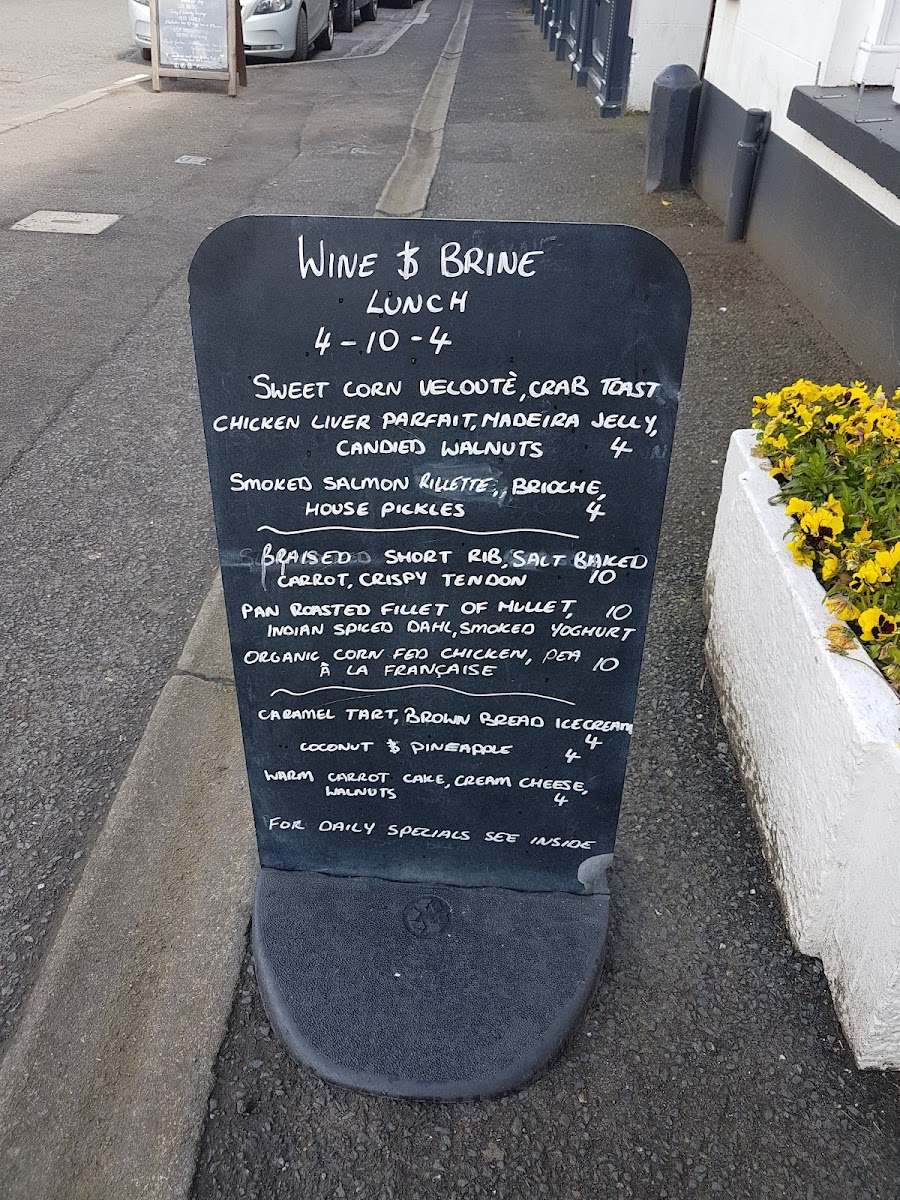 WINE & BRINE
LUNCH
4-10-4
SWEET CORN VELOUTÈ, CRAB TOAST
CHICKEN LIVER PARFAIT, MADEIRA JELLY,
CANDIED WALNUTS 4
SMOKED SALMON RILLETTE, BRIOCHE,
HOUSE PICKLES 4
BRAISED SHORT RIB, SALT BAKED
CARROT, CRISPY TENDON 10
PAN ROASTED FILLET OF MULLET, 10
INDIAN SPICED DAHL, SMOKED YOGHURT
ORGANIC CORN FED CHICKEN, PEA 10
À LA FRANÇAISE
CARAMEL TART, BROWN BREAD ICECREAM
4
COCONUT & PINEAPPLE 4
WARM CARROT CAKE, CREAM CHEESE,
WALNUTS 4
FOR DAILY SPECIALS SEE INSIDE